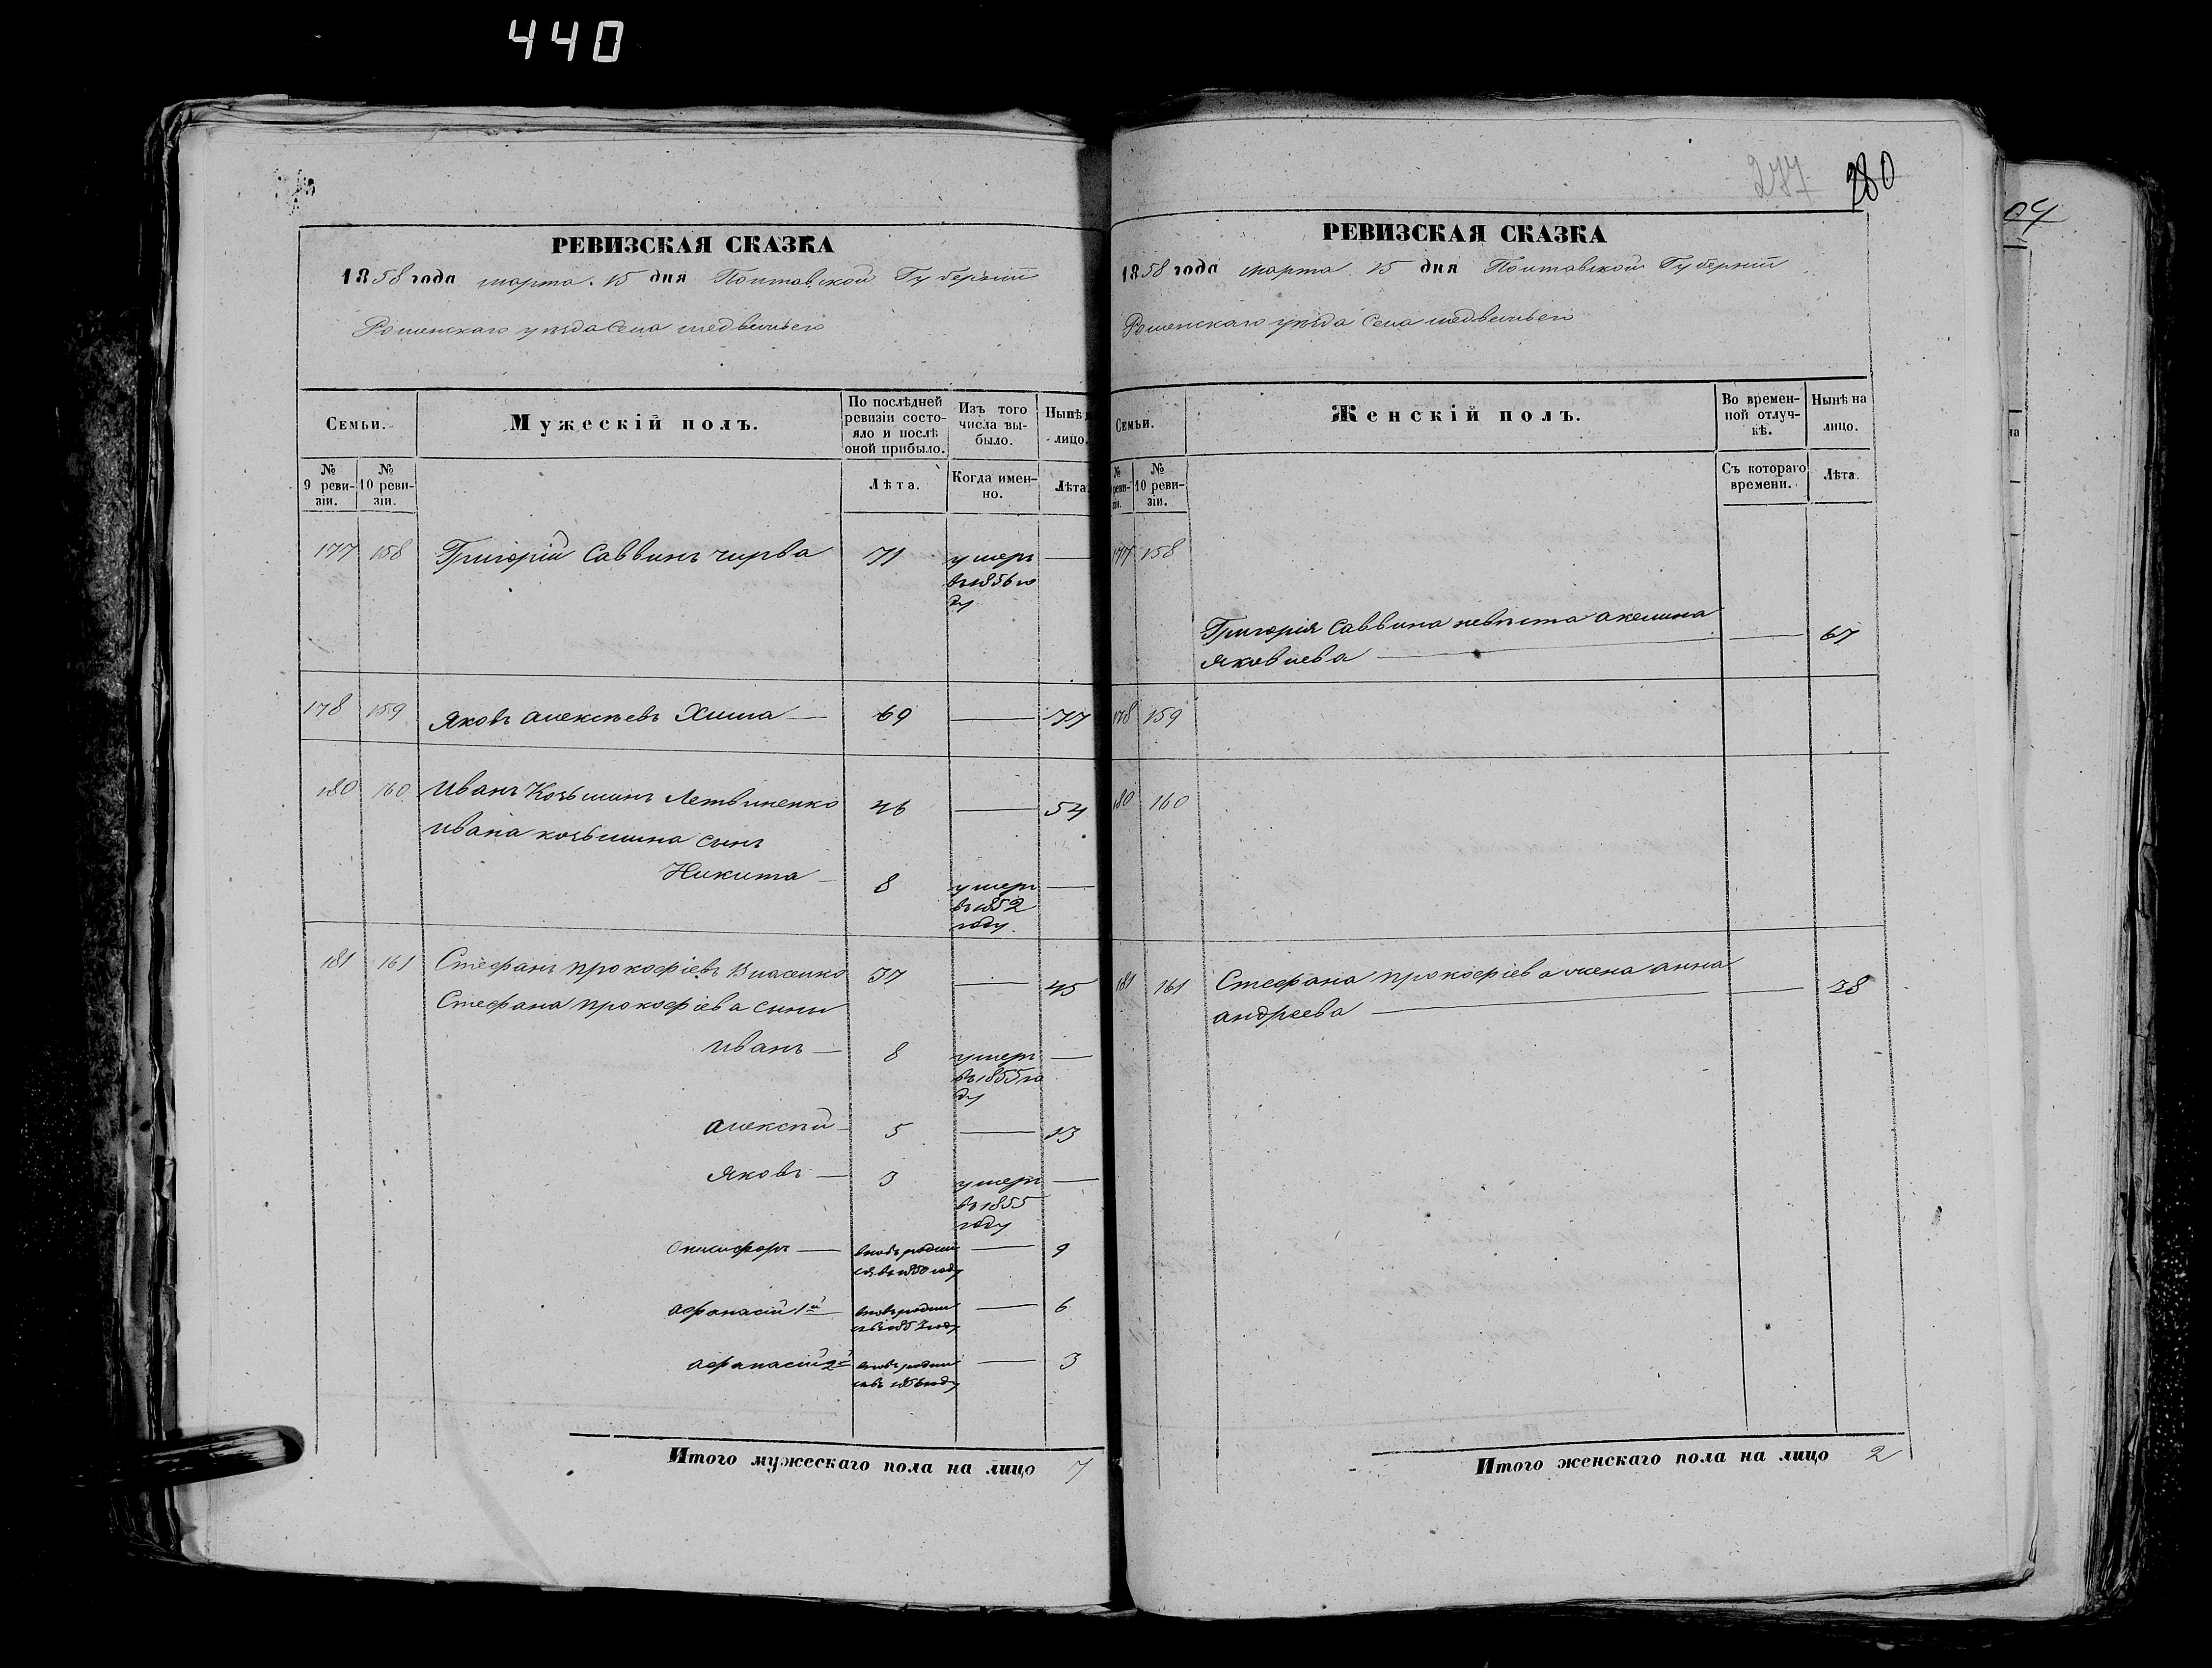 440
277 280
РЕВИЗСКАЯ СКАЗКА
1858 года марта 15 дня Полтавской Губерніи
Роменскаго уѣзда Села медвежьего
Семьи.
Мужескій полъ.
По послѣдней ревизіи состояло и послѣ оной прибыло.
Изъ того числа выбыло.
Нынѣ
лицо.
№ 9 ревизіи.
№ 10 ревизіи.
Лѣта.
Когда именно.
Лѣта
177 158 Григорій Саввинъ чирва 71 умеръ —
въ 1856 го
ду
178 159 Яковъ алексѣевъ Хима — 69 — 77
180 160 Иванъ Козьминъ Летвиненко 46 — 54
Ивана козьмина сынъ
Никита — 8 умеръ —
въ 1852
году.
181 161 Стефанъ прокофіевъ Власенко 37 — 45
Стефана прокофіева сыны
Иванъ — 8 умеръ —
въ 1855 го
ду
алексѣй — 5 — 13
Яковъ — 3 умеръ —
въ 1855
году
Онисифоръ — вновь родил — 9
ся въ 1850 году
афанасій 1й вновь родил — 6
году
афанасій 2й вновь родил — 3
году
Итого мужескаго пола на лицо 7
РЕВИЗСКАЯ СКАЗКА
1858 года марта 15 дня Полтавской Губерніи
Роменскаго уѣзда Села медвежьего
Семьи.
Женскій полъ.
Во временной отлучкѣ.
Нынѣ на лицо.
№ реви- зіи.
№ 10 ревизіи.
Съ котораго времени.
Лѣта.
177 158
Григорія Саввина невѣста акелина — 67
Яковлева —
178 159
180 160
181 161 Стефана прокофіева жена анна — 38
андреева —
Итого женскаго пола на лицо 2